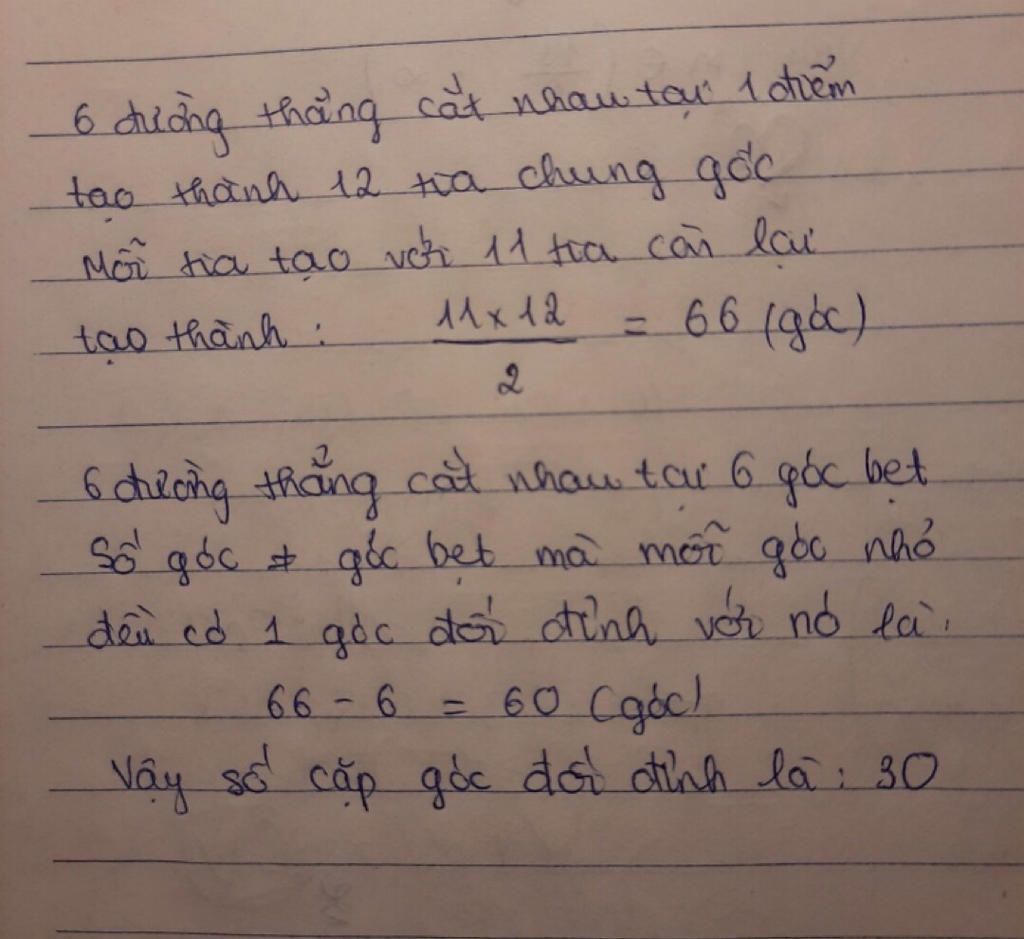 6 đường thẳng cắt nhau tại 1 điểm
tạo thành 12 tia chung gốc
Mỗi tia tạo với 11 tia còn lại
tạo thành : 11 x 12 / 2 = 66 (góc)
6 đường thẳng cắt nhau tại 6 góc bẹt
Số góc ≠ góc bẹt mà mỗi góc nhỏ
đều có 1 góc đối đỉnh với nó là :
66 - 6 = 60 (góc)
Vậy số cặp góc đối đỉnh là : 30